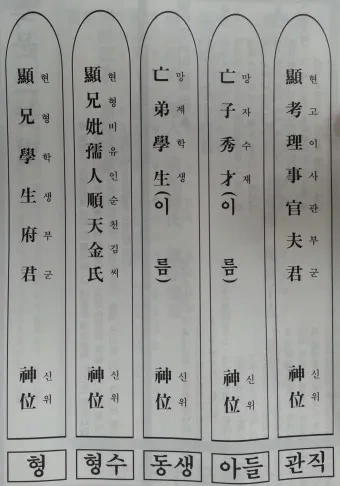 顯兄學生府君 神位
현형학생부군 신위
형
顯兄妣孺人順天金氏 神位
현형비유인순천김씨 신위
형수
亡弟學生(이 름) 神位
망제학생 신위
동생
亡子秀才(이 름) 神位
망자수재 신위
아들
顯考理事官夫君 神位
현고이사관부군 신위
관직